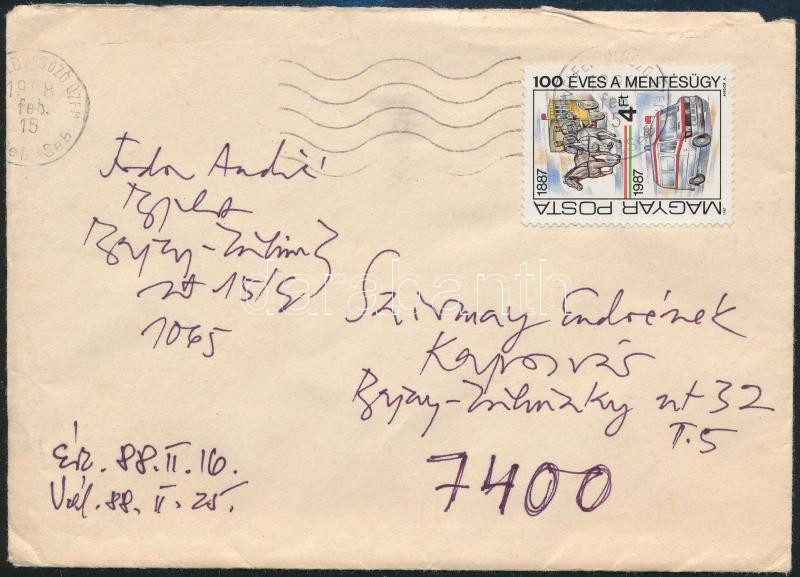 1988
feb.
15
100 ÉVES A MENTÉSÜGY
4Ft
1887
1987
MAGYAR POSTA
Fodor András
Bpest
Bajcsy-Zsil. 
út 15/
1065
darabanth
Szirmay Endrének
Kaposvár
Bajcsy-Zsilinszky út 32
I.5
7400
Érk. 88. II. 16.
Vál. 88. II. 25.